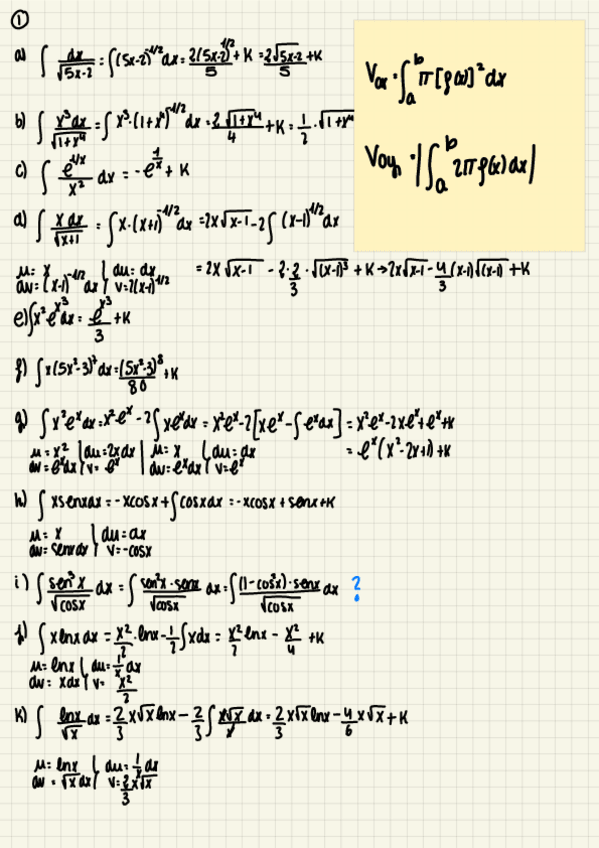 ①
a) ∫ dx/√(5x-2) = ∫(5x-2)^(-1/2) dx = 2(5x-2)^(1/2)/5 + K = 2√(5x-2)/5 + K
b) ∫ x³dx/√(1+x⁴) = ∫ x³·(1+x⁴)^(-1/2) dx = 2√(1+x⁴)/4 + K = 1/2 · √(1+x⁴)
c) ∫ e^(1/x)/x² dx = -e^(1/x) + K
d) ∫ x dx/√(x+1) = ∫ x·(x+1)^(-1/2) dx = 2x√(x-1) - 2∫ (x-1)^(1/2) dx
u = x | du = dx
dv = (x-1)^(-1/2) dx | v = 2(x-1)^(1/2)
= 2x√(x-1) - 2·2/3 · √((x-1)³) + K → 2x√(x-1) - 4/3 (x-1)√(x-1) + K
e) ∫x²e^(x³) dx = e^(x³)/3 + K
f) ∫ x(5x²-3)⁷ dx = (5x²-3)⁸/80 + K
g) ∫ x²eˣdx = x²eˣ - 2∫ xeˣdx = x²eˣ - 2[xeˣ - ∫eˣdx] = x²eˣ - 2xeˣ + eˣ + K
u = x² | du = 2x dx | u = x | du = dx
dv = eˣdx | v = eˣ | dv = eˣdx | v = eˣ
= eˣ(x² - 2x + 1) + K
h) ∫ x senx dx = -x cosx + ∫ cosx dx = -x cosx + senx + K
u = x | du = dx
dv = senx dx | v = -cosx
i) ∫ sen³x/√cosx dx = ∫ sen²x · senx/√cosx dx = ∫ (1-cos²x) · senx/√cosx dx ?
j) ∫ x lnx dx = x²/2 · lnx - 1/2 ∫ x dx = x²/2 lnx - x²/4 + K
u = lnx | du = 1/x dx
dv = x dx | v = x²/2
k) ∫ lnx/√x dx = 2/3 x√x lnx - 2/3 ∫ x√x/x dx = 2/3 x√x lnx - 4/6 x√x + K
u = lnx | du = 1/x dx
dv = √x dx | v = 2/3 x√x
Vox = ∫ₐᵇ π[f(x)]² dx
Voy = |∫ₐᵇ 2π f(x) dx|